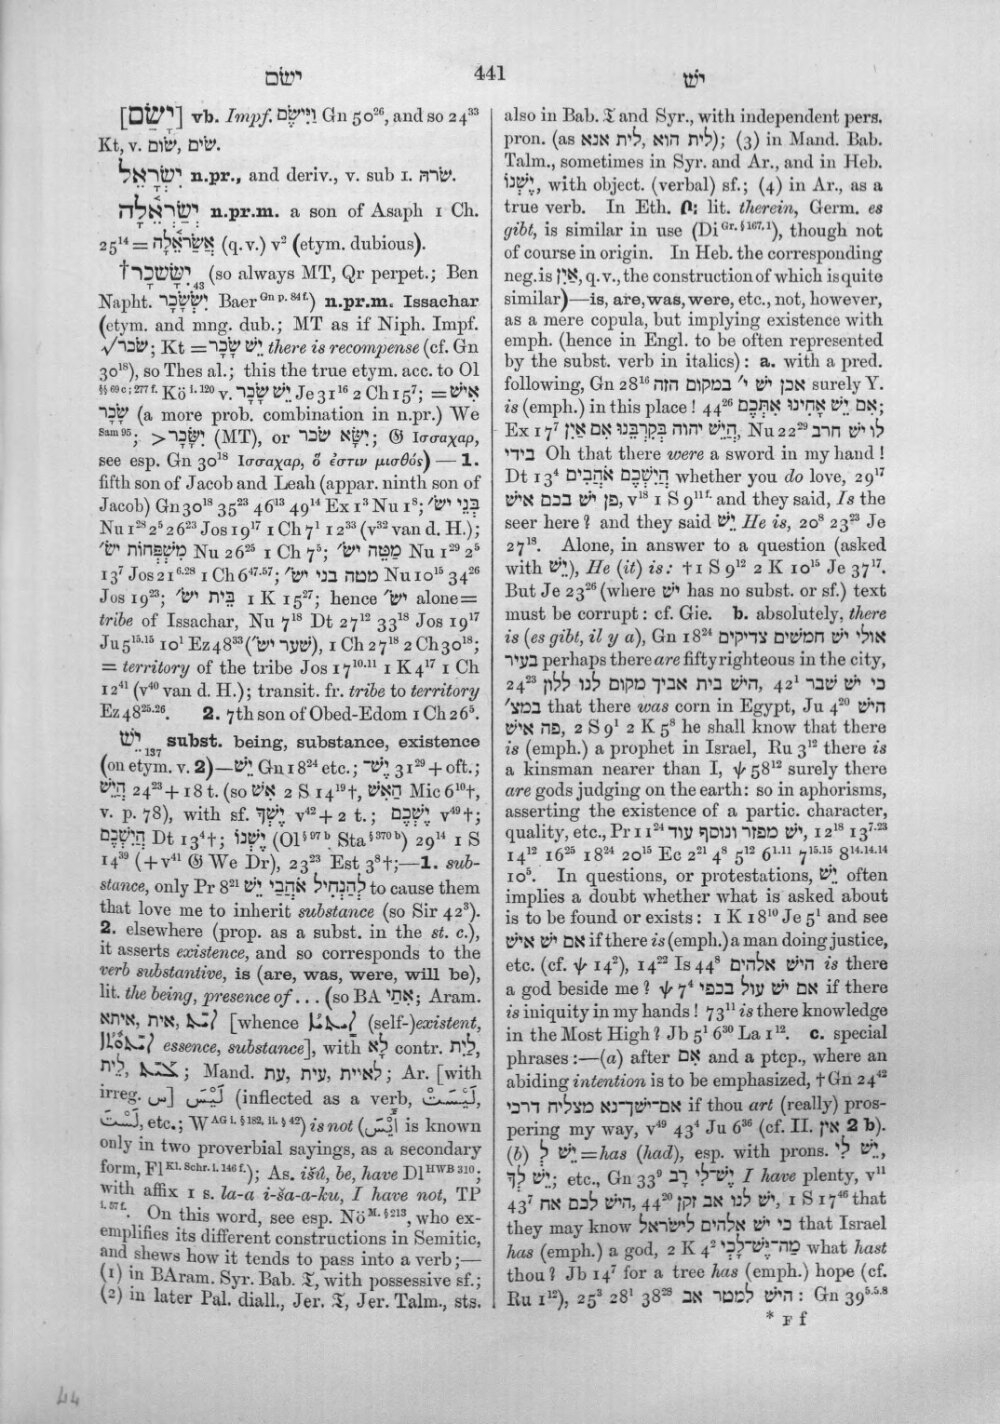 ישׂם 441 ישׁ
[יָשַׂם] vb. Impf. וַיִּישֶׂם Gn 50²⁶, and so 24³³
Kt, v. שׂים, שׂוּם.
יִשְׂרָאֵל n.pr., and deriv., v. sub I. שׂרה.
יְשַׂרְאֵלָה n.pr.m. a son of Asaph 1 Ch.
25¹⁴ = אֲשַׂרְאֵלָה (q.v.) v² (etym. dubious).
†יִשָּׂשכָר₄₃ (so always MT, Qr perpet.; Ben
Napht. יִשְׂשָׂכָר Baer Gn p. 84 f.) n.pr.m. Issachar
(etym. and mng. dub.; MT as if Niph. Impf.
√שׂכר; Kt = יֵשׁ שָׂכָר there is recompense (cf. Gn
30¹⁸), so Thes al.; this the true etym. acc. to Ol
§§ 69 c; 277 f. Kö i. 120 v. יֵשׁ שָׂכָר Je 31¹⁶ 2 Ch 15⁷; = אִישׁ
שָׂכָר (a more prob. combination in n.pr.) We
Sam 95; > יִשָּׂכָר (MT), or יִשָּׂא שׂכר; 𝔊 Ισσαχαρ,
see esp. Gn 30¹⁸ Ισσαχαρ, ὅ ἐστιν μισθός) — 1.
fifth son of Jacob and Leah (appar. ninth son of
Jacob) Gn 30¹⁸ 35²³ 46¹³ 49¹⁴ Ex 1³ Nu 1⁸; בְּנֵי ישׂ׳
Nu 1²⁸ 2⁵ 26²³ Jos 19¹⁷ 1 Ch 7¹ 12³³ (v³² van d. H.);
מִשְׁפְּחוֹת ישׂ׳ Nu 26²⁵ 1 Ch 7⁵; מַטֵּה ישׂ׳ Nu 1²⁹ 2⁵
13⁷ Jos 21⁶·²⁸ 1 Ch 6⁴⁷·⁵⁷; מטה בני ישׂ׳ Nu 10¹⁵ 34²⁶
Jos 19²³; בֵּית ישׂ׳ 1 K 15²⁷; hence ישׂ׳ alone =
tribe of Issachar, Nu 7¹⁸ Dt 27¹² 33¹⁸ Jos 19¹⁷
Ju 5¹⁵·¹⁵ 10¹ Ez 48³³ (שׁער ישׂ׳), 1 Ch 27¹⁸ 2 Ch 30¹⁸;
= territory of the tribe Jos 17¹⁰·¹¹ 1 K 4¹⁷ 1 Ch
12⁴¹ (v⁴⁰ van d. H.); transit. fr. tribe to territory
Ez 48²⁵·²⁶. 2. 7th son of Obed-Edom 1 Ch 26⁵.
יֵשׁ₁₃₇ subst. being, substance, existence
(on etym. v. 2)—יֵשׁ Gn 18²⁴ etc.; יֶשׁ־ 31²⁹ + oft.;
הֲיֵשׁ 24²³ + 18 t. (so אִשׁ 2 S 14¹⁹†, הַאִשׁ Mic 6¹⁰†,
v. p. 78), with sf. יֶשְׁךָ v⁴² + 2 t.; יֶשְׁכֶם v⁴⁹†;
הֲיִשְׁכֶם Dt 13⁴†; יֶשְׁנוֹ (Ol § 97 b Sta § 370 b) 29¹⁴ 1 S
14³⁹ (+ v⁴¹ 𝔊 We Dr), 23²³ Est 3⁸†;—1. sub-
stance, only Pr 8²¹ לְהַנְחִיל אֹהֲבַי יֵשׁ to cause them
that love me to inherit substance (so Sir 42³).
2. elsewhere (prop. as a subst. in the st. c.),
it asserts existence, and so corresponds to the
verb substantive, is (are, was, were, will be),
lit. the being, presence of ... (so BA אִתַי; Aram.
אית, איתא, ܐܝܬ [whence (self-)existent,
essence, substance], with לָא contr. לַיִת,
לֵית, ܠܝܬ; Mand. עית, עת; לאיית; Ar. [with
irreg. س] لَيْسَ (inflected as a verb, لَيْسَتْ,
لَسْتَ, etc.; W AG i. § 182, ii. § 42) is not (أَيْسَ is known
only in two proverbial sayings, as a secondary
form, Fl Kl. Schr. i. 146 f.); As. išû, be, have Dl HWB 310;
with affix 1 s. la-a i-ša-a-ku, I have not, TP
i. 57 f. On this word, see esp. Nö M. § 213, who ex-
emplifies its different constructions in Semitic,
and shews how it tends to pass into a verb;—
(1) in BAram. Syr. Bab. 𝔗, with possessive sf.;
(2) in later Pal. diall., Jer. 𝔗, Jer. Talm., sts.
also in Bab. 𝔗 and Syr., with independent pers.
pron. (as לית הוא, לית אנא); (3) in Mand. Bab.
Talm., sometimes in Syr. and Ar., and in Heb.
יֶשְׁנוֹ, with object. (verbal) sf.; (4) in Ar., as a
true verb. In Eth. ቦ: lit. therein, Germ. es
gibt, is similar in use (Di Gr. § 167, 1), though not
of course in origin. In Heb. the corresponding
neg. is אַיִן, q.v., the construction of which is quite
similar)—is, are, was, were, etc., not, however,
as a mere copula, but implying existence with
emph. (hence in Engl. to be often represented
by the subst. verb in italics): a. with a pred.
following, Gn 28¹⁶ אכן ישׁ י׳ במקום הזה surely Y.
is (emph.) in this place! 44²⁶ אִם יֵשׁ אָחִינוּ אִתָּכֶם;
Ex 17⁷ הֲיֵשׁ יהוה בְּקִרְבֵּנוּ אִם אַיִן, Nu 22²⁹ לוּ ישׁ חרב
בידי Oh that there were a sword in my hand!
Dt 13⁴ הֲיִשְׁכֶם אֹהֲבִים whether you do love, 29¹⁷
פֶּן ישׁ בכם אישׁ, v¹⁸ 1 S 9¹¹ᶠ· and they said, Is the
seer here? and they said יֵשׁ He is, 20⁸ 23²³ Je
27¹⁸. Alone, in answer to a question (asked
with יֵשׁ), He (it) is: †1 S 9¹² 2 K 10¹⁵ Je 37¹⁷.
But Je 23²⁶ (where ישׁ has no subst. or sf.) text
must be corrupt: cf. Gie. b. absolutely, there
is (es gibt, il y a), Gn 18²⁴ אולי ישׁ חמשׁים צדיקים
בעיר perhaps there are fifty righteous in the city,
24²³ הישׁ בית אביך מקום לנו ללון, 42¹ כי ישׁ שׁבר
במצ׳ that there was corn in Egypt, Ju 4²⁰ הישׁ
פה אישׁ, 2 S 9¹ 2 K 5⁸ he shall know that there
is (emph.) a prophet in Israel, Ru 3¹² there is
a kinsman nearer than I, ψ 58¹² surely there
are gods judging on the earth: so in aphorisms,
asserting the existence of a partic. character,
quality, etc., Pr 11²⁴ ישׁ מפזר ונוסף עוד, 12¹⁸ 13⁷·²³
14¹² 16²⁵ 18²⁴ 20¹⁵ Ec 2²¹ 4⁸ 5¹² 6¹·¹¹ 7¹⁵·¹⁵ 8¹⁴·¹⁴·¹⁴
10⁵. In questions, or protestations, יֵשׁ often
implies a doubt whether what is asked about
is to be found or exists: 1 K 18¹⁰ Je 5¹ and see
אם ישׁ אישׁ if there is (emph.) a man doing justice,
etc. (cf. ψ 14²), 14²² Is 44⁸ הישׁ אלהים is there
a god beside me? ψ 7⁴ אם ישׁ עול בכפי if there
is iniquity in my hands! 73¹¹ is there knowledge
in the Most High? Jb 5¹ 6³⁰ La 1¹². c. special
phrases:—(a) after אִם and a ptcp., where an
abiding intention is to be emphasized, †Gn 24⁴²
אם־ישׁך־נא מצליח דרכי if thou art (really) pros-
pering my way, v⁴⁹ 43⁴ Ju 6³⁶ (cf. II. אין 2 b).
(b) יֵשׁ לְ = has (had), esp. with prons. יֵשׁ לִי,
יֵשׁ לְךָ; etc., Gn 33⁹ יֶשׁ־לִי רָב I have plenty, v¹¹
43⁷ הישׁ לכם אח, 44²⁰ ישׁ לנו אב זקן, 1 S 17⁴⁶ that
they may know כי ישׁ אלהים לישׂראל that Israel
has (emph.) a god, 2 K 4² מַה־יֶּשׁ־לָכִי what hast
thou? Jb 14⁷ for a tree has (emph.) hope (cf.
Ru 1¹²), 25³ 28¹ 38²⁸ הישׁ למטר אב: Gn 39⁵·⁵·⁸
* F f
44